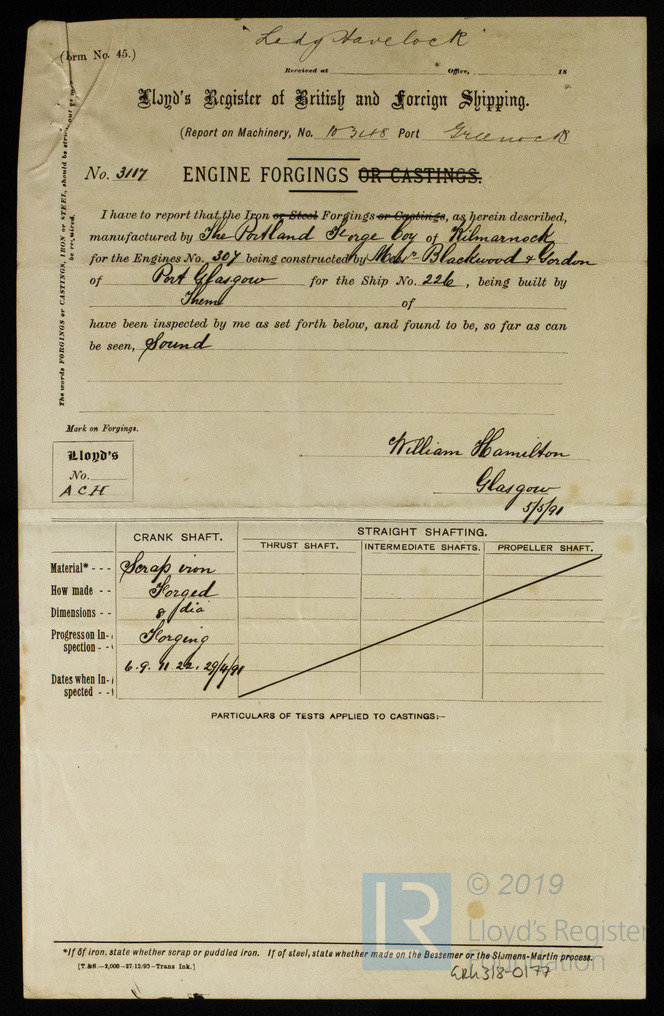 "Lady Havelock"
(Form No. 45.)
Received at Office, 18
Lloyd's Register of British and Foreign Shipping.
(Report on Machinery, No. 10348 Port Greenock
No. 3117 ENGINE FORGINGS OR CASTINGS.
The words FORGINGS or CASTINGS, IRON or STEEL, should be struck out as may be required.
I have to report that the Iron or Steel Forgings or Castings, as herein described,
manufactured by The Portland Forge Coy of Kilmarnock
for the Engines No. 307 being constructed by Messrs Blackwood & Gordon
of Port Glasgow for the Ship No. 226, being built by
Them of
have been inspected by me as set forth below, and found to be, so far as can
be seen, Sound
Mark on Forgings.
Lloyd's
No.
A C H
William Hamilton
Glasgow
5/5/91
CRANK SHAFT. STRAIGHT SHAFTING.
THRUST SHAFT. INTERMEDIATE SHAFTS. PROPELLER SHAFT.
Material* - - - Scrap iron
How made - - Forged
Dimensions - - 8 dia
Progress on In-spection - - Forging
Dates when In-spected - - 6. 9. 11. 22. 29/4/91
PARTICULARS OF TESTS APPLIED TO CASTINGS:—
© 2019
Lloyd's Register
Foundation
*If of iron, state whether scrap or puddled iron. If of steel, state whether made on the Bessemer or the Siemens-Martin process.
[T.&S.—2,000—27/12/90—Trans Ink.]
GRK318-0177